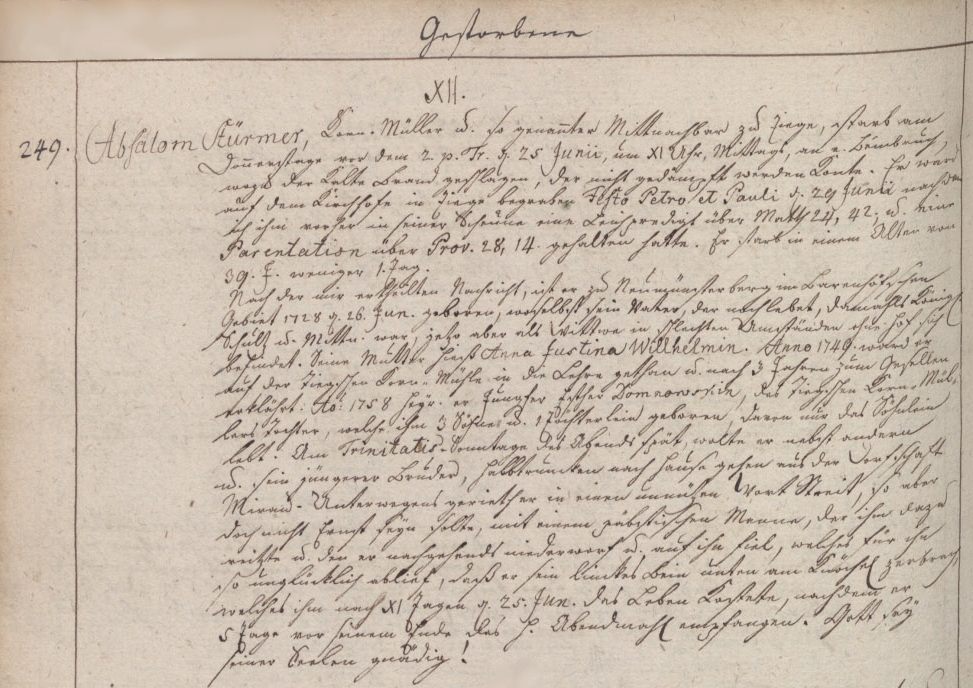 Gestorbene
XII.
249. Absalom Stürmer, Korn-Müller u. so genannter Mittnachbar zu Ziege, starb am
Donnerstage vor dem 2. p. Tr. d. 25 Junii, um XI Uhr, Mittags, an e. Beinbruch,
wozu der Kalte Brand geschlagen, der nicht gedämpft werden konte. Er ward
auf dem Kirchhofe in Ziege begraben Festo Petro et Pauli d. 29 Junii nachdem
ich ihm vorher in seiner Scheune eine Leichpredigt über Matth 24, 42. u. eine
Parentation über Prov. 28, 14. gehalten hatte. Er starb in einem Alter von
39. J. weniger 1. Tag.
Nach der mir ertheilten Nachricht, ist er zu Neumünsterberg im Barenhöfschen
Gebiet 1728 d. 26. Jun. geboren, woselbst sein Vater, der noch lebet, damahls König.
Schulz u. Mittn. war, jetzo aber als Wittwer in schlechten Umständen ohne Hof sich
befindet. Seine Mutter hiess Anna Justina Willhelmin. Anno 1749. ward er
auf der Ziegschen Korn-Mühle in die Lehre gethan u. nach 3 Jahren zum Gesellen
erklährt. Ao: 1758 heyr. er Jungfer Esther Domnowskin, des Ziegschen Korn-Mül-
lers Tochter, welche ihm 3 Söhne u. 1 Töchterlein geboren, davon nur das Söhnlein
lebt. Am Trinitatis-Sonntage des Abends spät, wolte er nebst andern
u. sein jüngerer Bruder, halbtrunken nach Hause gehen aus der Dorfschaft
Mirau. Unterwegens geriethe er in einen unnützen Wort Streit, so aber
doch nicht Ernst seyn solte, mit einem päbstischen Manne, der ihn dazu
reitzte u. den er nachgehends niederworf u. auf ihn fiel, welches für ihn
so unglücklich ablief, daß er sein linckes Bein unten am Knöchel zerbrach,
welches ihm nach XI Tagen d. 25. Jun. das Leben kostete, nachdem er
5 Tage vor seinem Ende das H. Abendmahl empfangen. Gott sey
seiner Seelen gnädig!